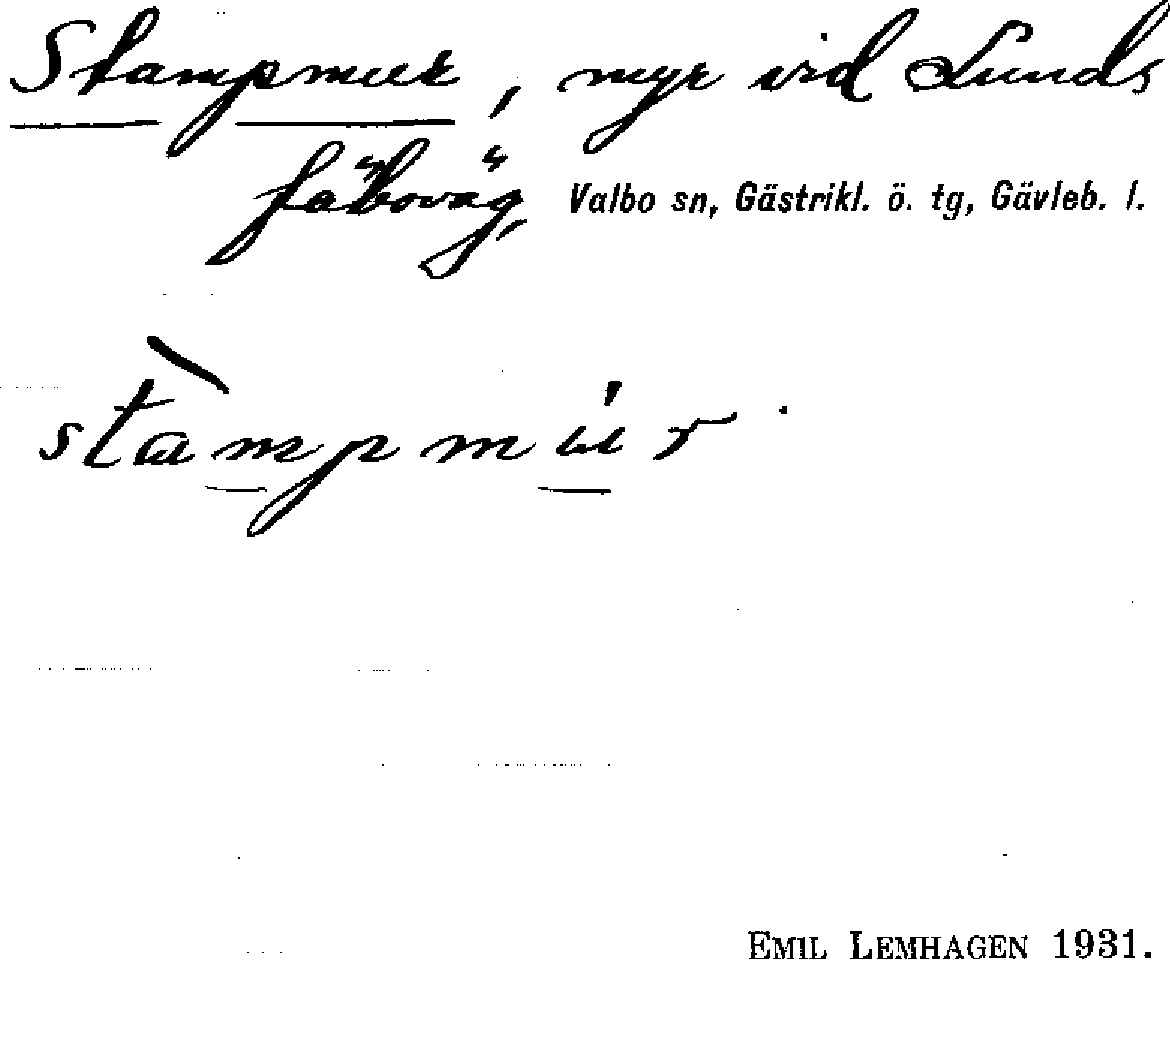 Stampmur, myr vid Lunds
fäboväg, Valbo sn, Gästrikl. ö. tg, Gävleb. l.
stàmpmúr.
EMIL LEMHAGEN 1931.